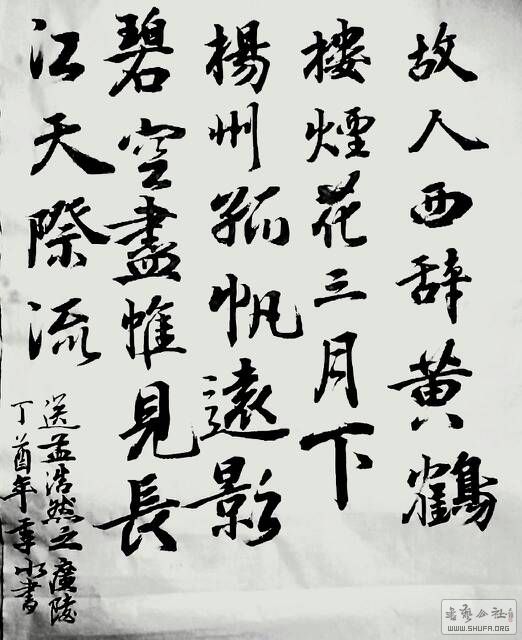 故人西辞黄鶴
樓煙花三月下
楊州孤帆遠影
碧空盡惟見長
江天際流
送孟浩然之廣陵
丁酉年季水書
书艺公社
WWW.SHUFA.ORG